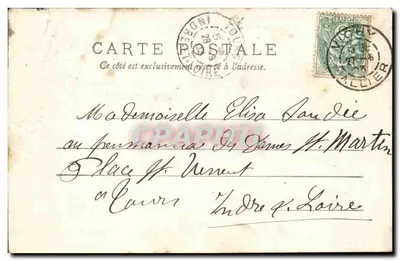 CARTE POSTALE
Ce côté est exclusivement réservé à l'adresse.
VICHY
ALLIER
INDRE-ET-LOIRE
Mademoiselle Elisa
au pensionnat des Dames St. Martin
Place St. Vincent
à Tours
Indre & Loire